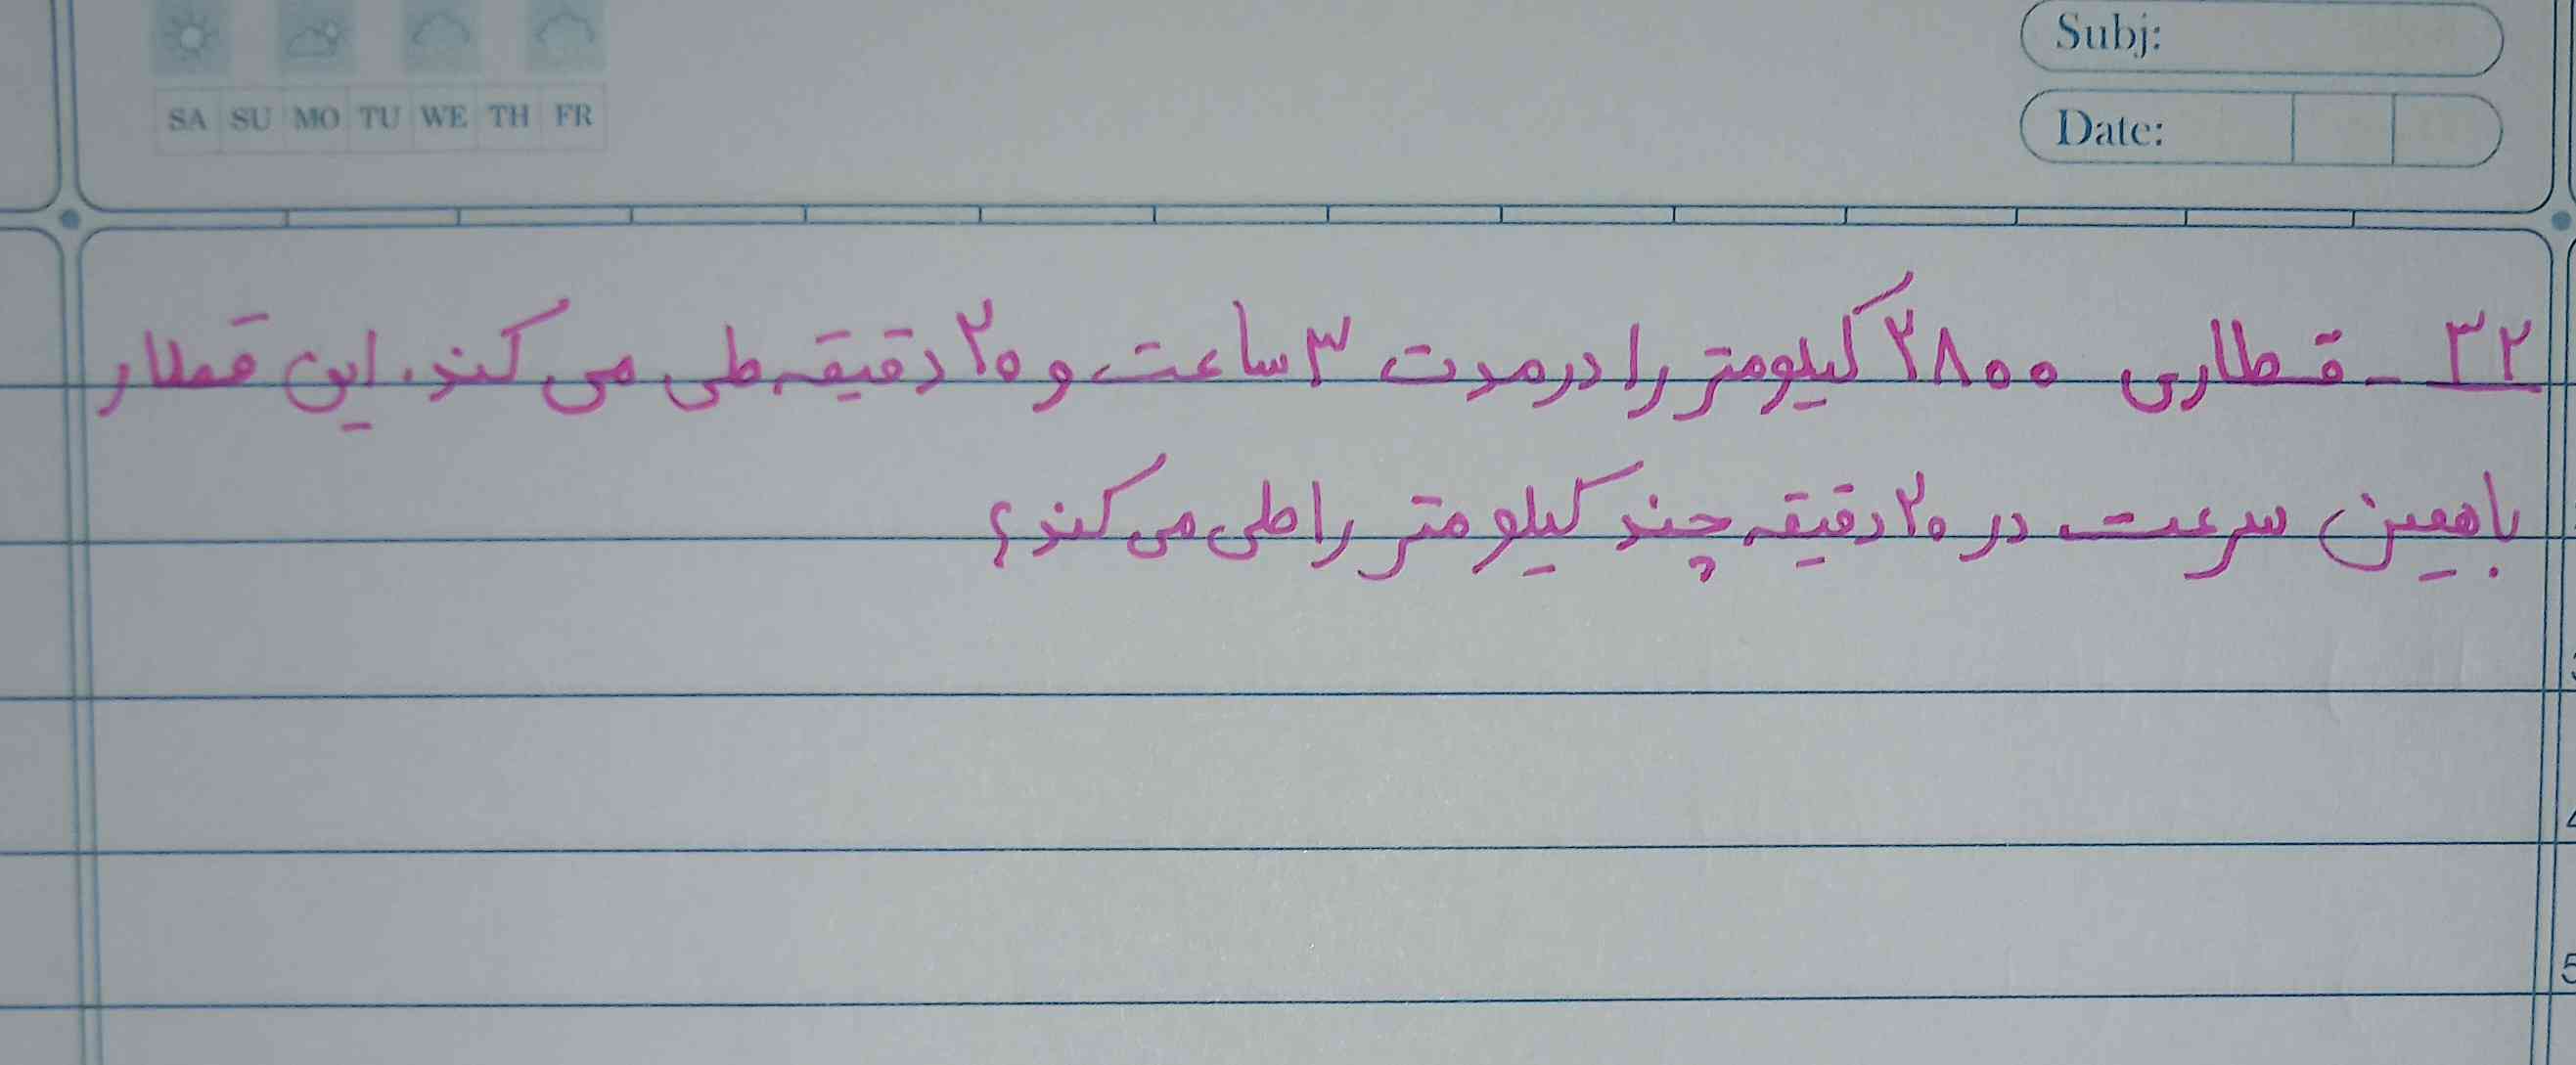 SA SU MO TU WE TH FR
Subj:
Date:
۳۲ - قطاری ۲۸۰۰ کیلومتر را در مدت ۳ ساعت و ۲۰ دقیقه طی می کند. این قطار
با همین سرعت در ۲۰ دقیقه چند کیلومتر را طی می کند؟
4
5